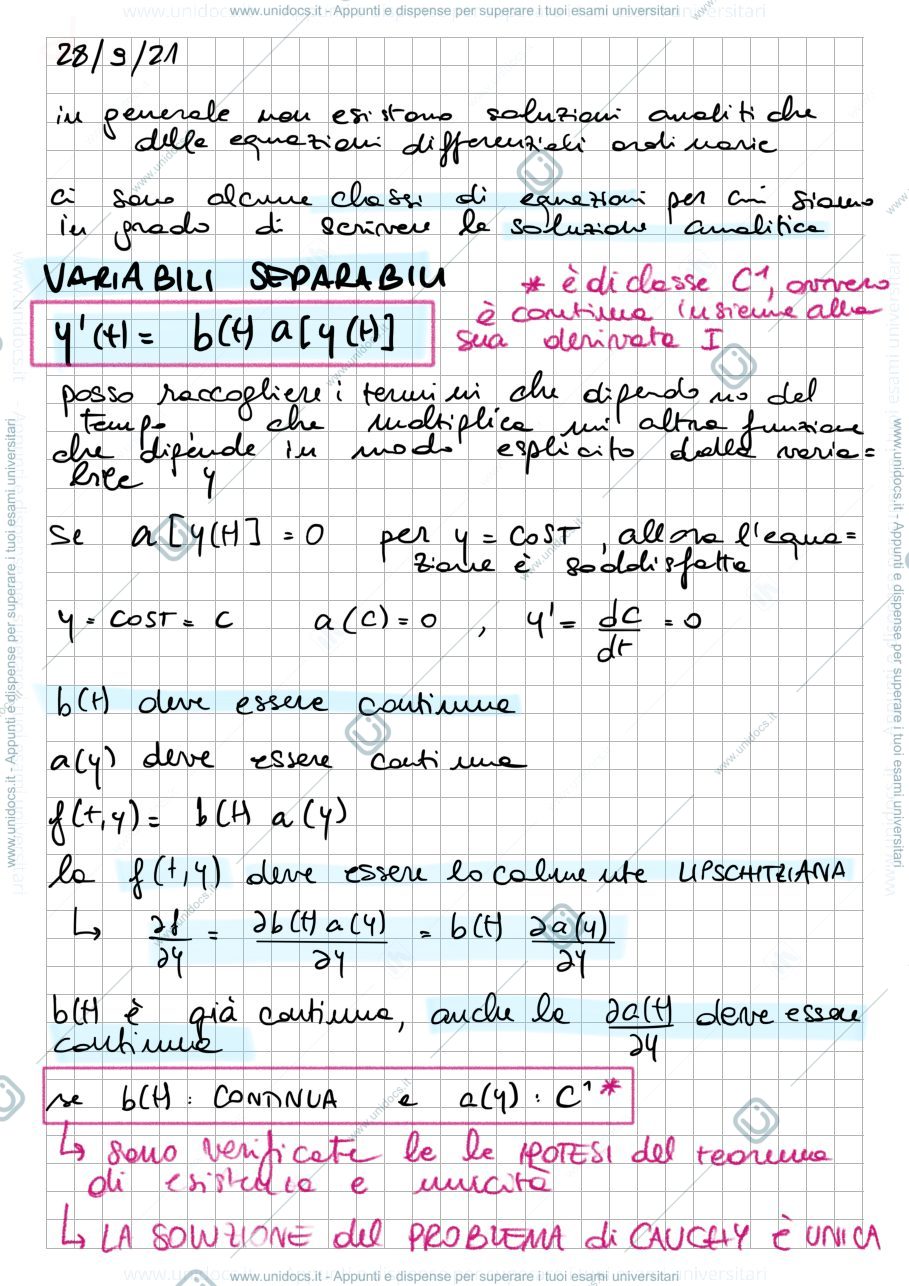 www.unidocs.it - Appunti e dispense per superare i tuoi esami universitari
28/9/21
in generale non esistono soluzioni analitiche
delle equazioni differenziali ordinarie
ci sono alcune classi di equazioni per cui siamo
in grado di scrivere la soluzione analitica
VARIABILI SEPARABILI
* è di classe C¹, ovvero
è continua insieme alla
sua derivata I
y'(t) = b(t) a[y(t)]
posso raccogliere i termini che dipendono del
tempo, che moltiplica un'altra funzione
che dipende in modo esplicito dalla varia=
bile y
se a[y(t)] = 0 per y = COST, allora l'equa=
zione è soddisfatta
y = COST = C a(C) = 0 , y' = dC/dt = 0
b(t) deve essere continua
a(y) deve essere continua
f(t,y) = b(t) a(y)
la f(t,y) deve essere localmente LIPSCHITZIANA
↳ ∂f/∂y = ∂b(t)a(y)/∂y = b(t) ∂a(y)/∂y
b(t) è già continua, anche la ∂a(t)/∂y deve essere
continua
se b(t) : CONTINUA e a(y) : C¹ *
↳ sono verificate le le IPOTESI del teorema
di esistenza e unicità
↳ LA SOLUZIONE del PROBLEMA di CAUCHY È UNICA
www.unidocs.it - Appunti e dispense per superare i tuoi esami universitari
www.unidocs.it - Appunti e dispense per superare i tuoi esami universitari
www.unidocs.it - Appunti e dispense per superare i tuoi esami universitari